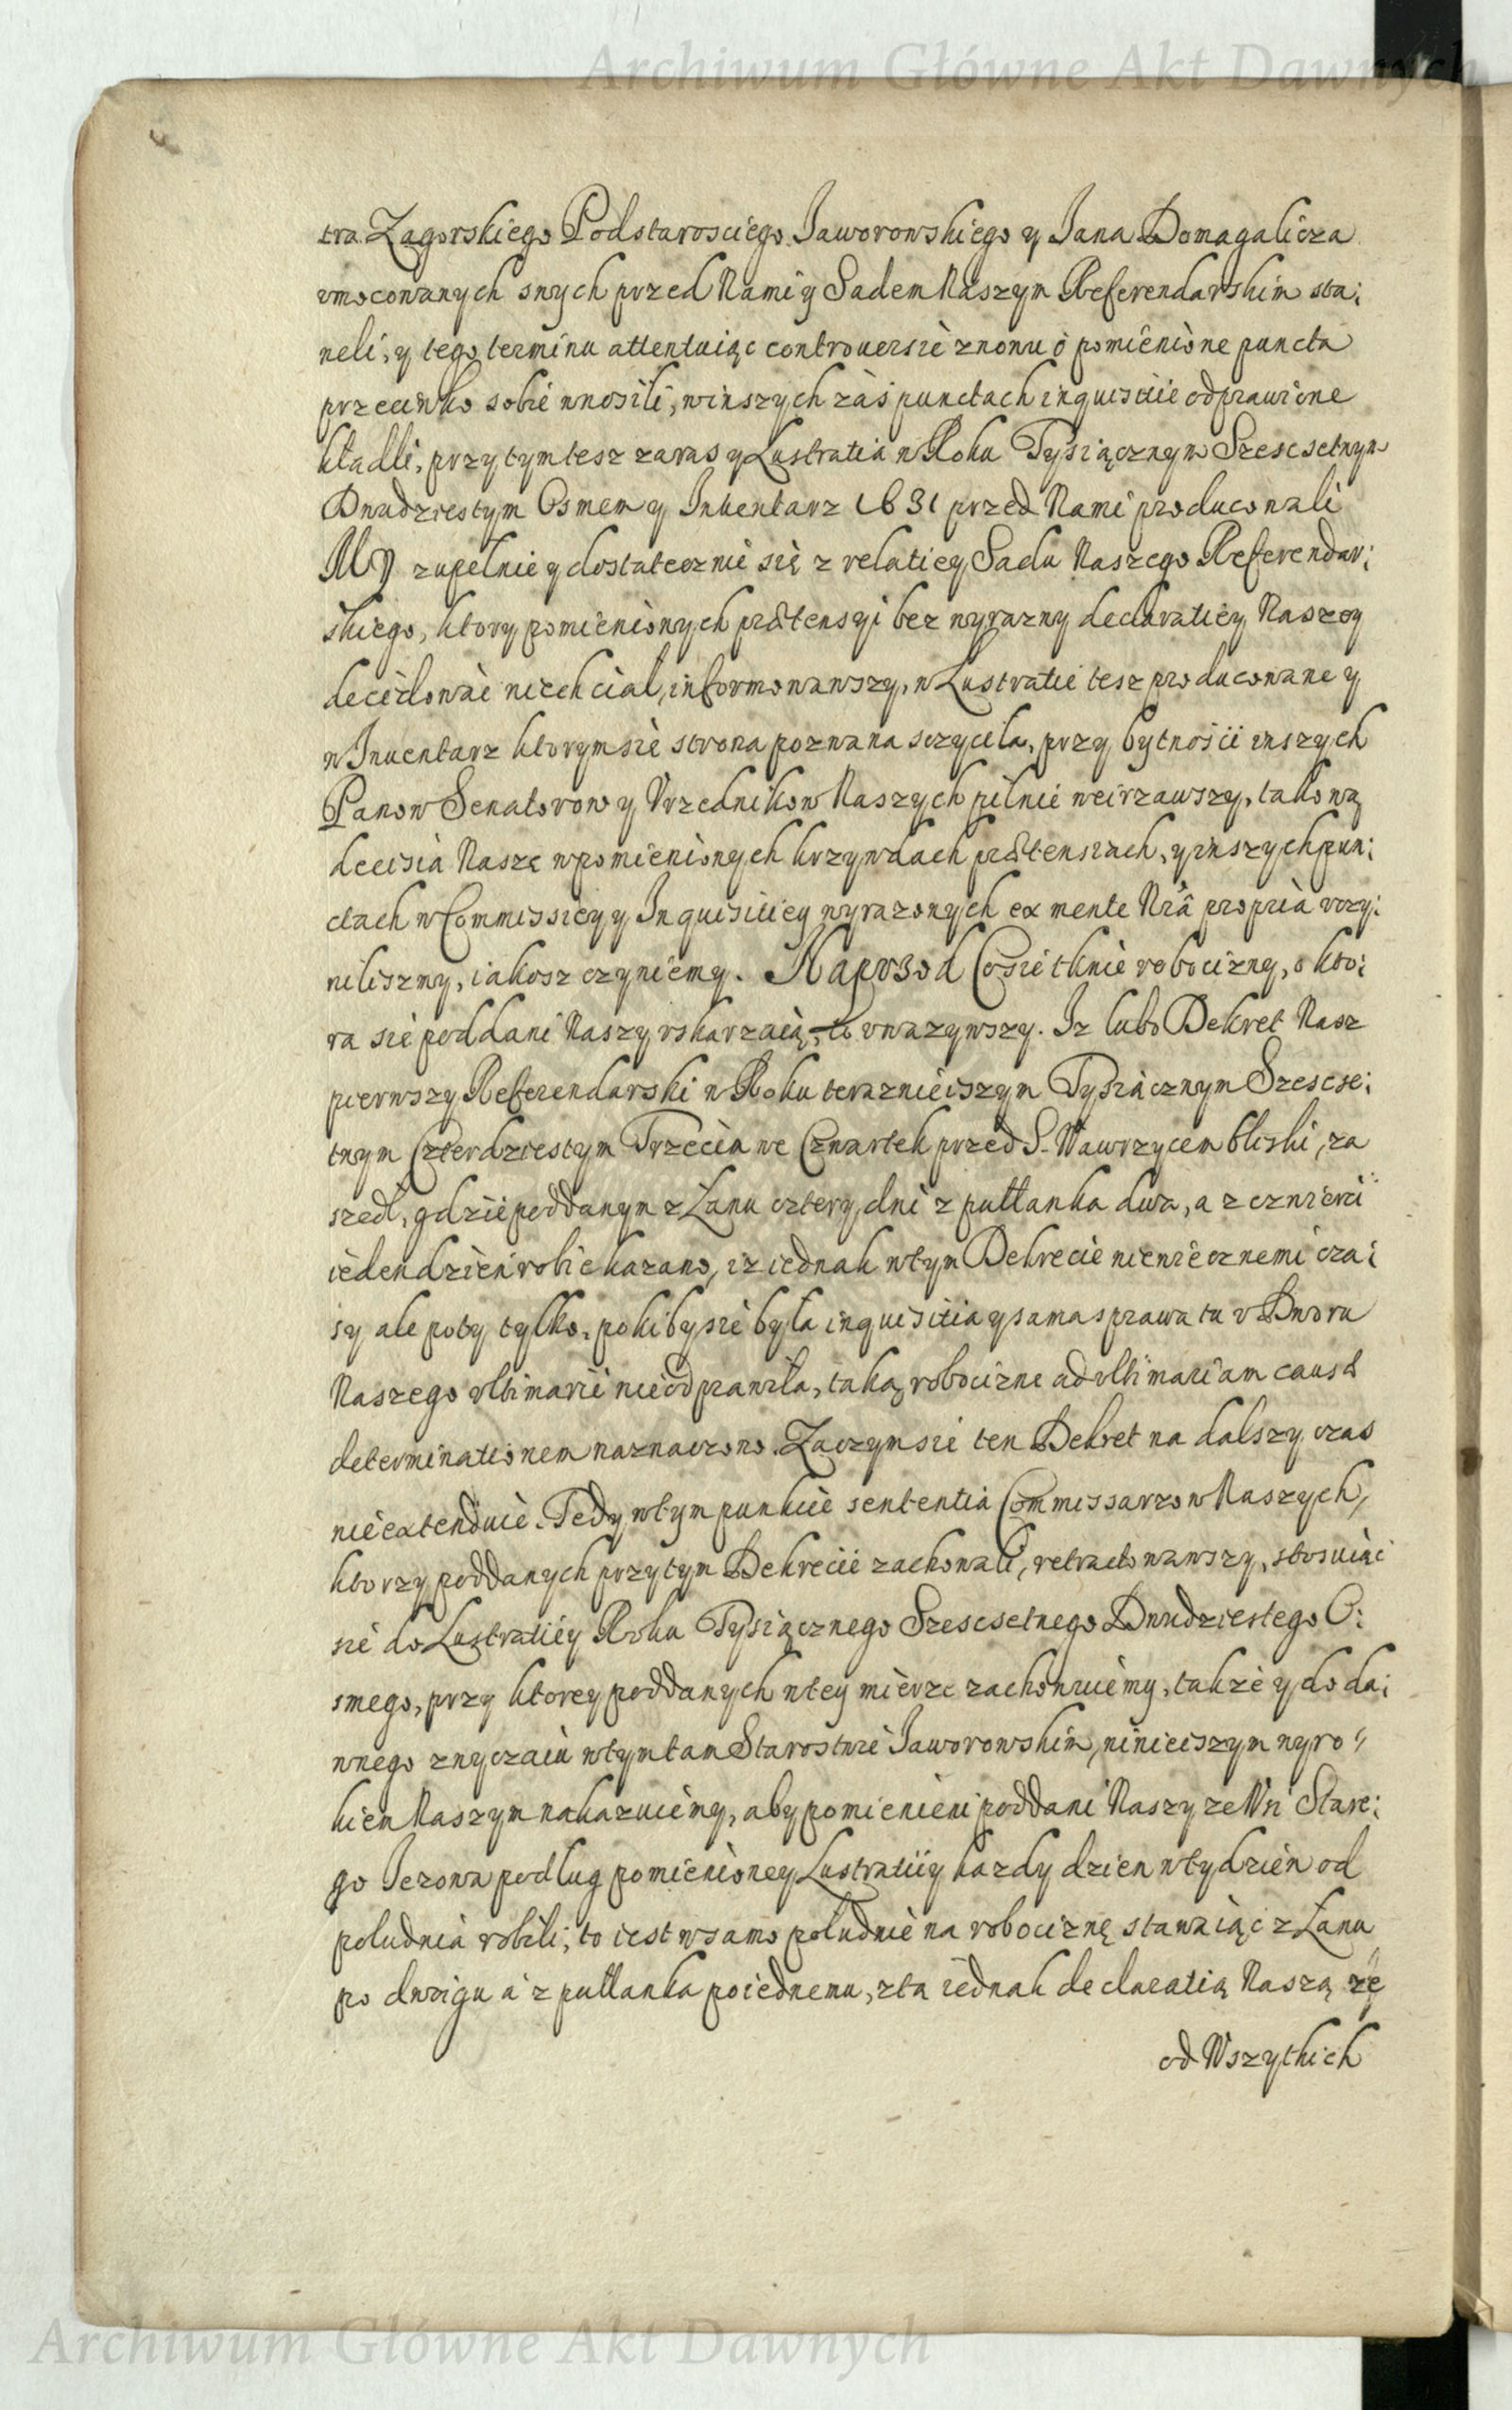 Archiwum Główne Akt Dawnych
tra Zagorskiego Podstarosciego Jaworowskiego y Jana Domagalicza
vmocowanych swych przed Nami y Sadem Naszym Referendarskim sta:
neli, y tego terminu attentuiąc controuersie znowu o pomienione puncta
przeciwko sobie wnosili, winszych zaś punctach inquisitie odprawione
kładli, przytym tesz zaras y Lustratia w Roku Tysiącznym Szescsetnym
Dwudziestym Osmem y Inuentarz 1631 przed Nami producowali
MY zupełnie y dostatecznie się z relatiey Sadu Naszego Referendar:
skiego, ktory pomienionych prætensyi bez wyrazny declaratiey Naszey
decidowac niechcial, informowawszy, w Lustratie tesz producowane y
w Inuentarz ktorym sie strona pozwana sczyciła, przy bytnosci inszych
Panow Senatorow y Vrzednikow Naszych pilnie weirzawszy, takową
decisia Naszę wpomienionych krzywdach prætensiach, y inszych pun:
ctach w Commissiey y Inquisitiey wyrazonych ex mente Nrâ propria vczy:
nilismy, iakosz czyniemy. Naprzod Co sie tknie robocizny, o kto:
ra sie poddani Naszy vskarzaią, to vwazywszy. Iz lubo Dekret Nasz
pierwszy Referendarski w Roku teraznieiszym Tysiącznym Szescse:
tnym Czterdziestym Trzecim we Czwartek przed S. Wawrzycem bliski, za
szedł, gdzie poddanym z Łanu cztery dni z pułłanka dwa, a z czwierci
ieden dzień robic kazano, iz iednak wtym Dekrecie niewiecznemi cza:
sy ale poty tylko, poki by sie była inquisitia y sama sprawa tu v Dworu
Naszego vltimarie nieodprawiła, taką robocizne ad vltimariam causæ
determinationem naznaczono. Zaczym sie ten Dekret na dalszy czas
nie extenduie. Tedy wtym punkcie sententia Commissarzow Naszych,
ktorzy poddanych przytym Dekrecie zachowali, retractowawszy, stosuiąc
sie do Lustratiey Roku Tysiącznego Szescsetnego Dwudziestego O:
smego, przy ktorey poddanych wtey mierze zachowuiemy, takze y do da:
wnego zwyczaiu wtym tam Starostwie Jaworowskim, ninieiszym wyro"
kiem Naszym nakazuiemy, aby pomienieni poddani Naszy ze Wsi Stare:
go Jezowa podług pomienioney Lustratiiy kazdy dzien wtydzień od
południa robili, to iest wsamo południe na robociznę stawaiąc z Łanu
po dwoigu a z pułłanka poiednemu, zta iednak declaratią Naszą zę
od Wszytkich
Archiwum Główne Akt Dawnych